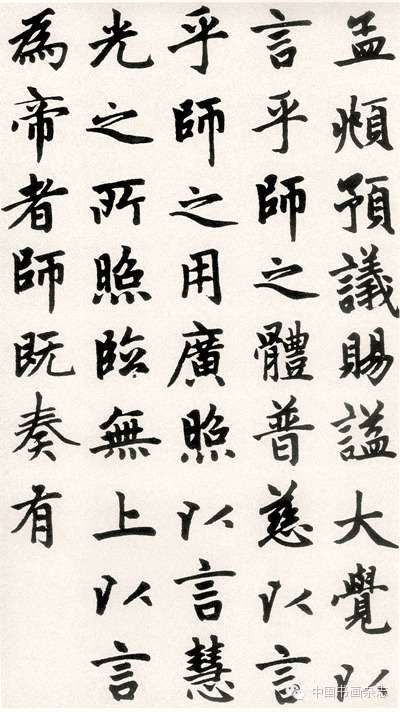 孟頫預議賜謚大覺以
言乎師之體普慈以言
乎師之用廣照以言慧
光之所照臨無上以言
為帝者師既奏有
中国书画杂志